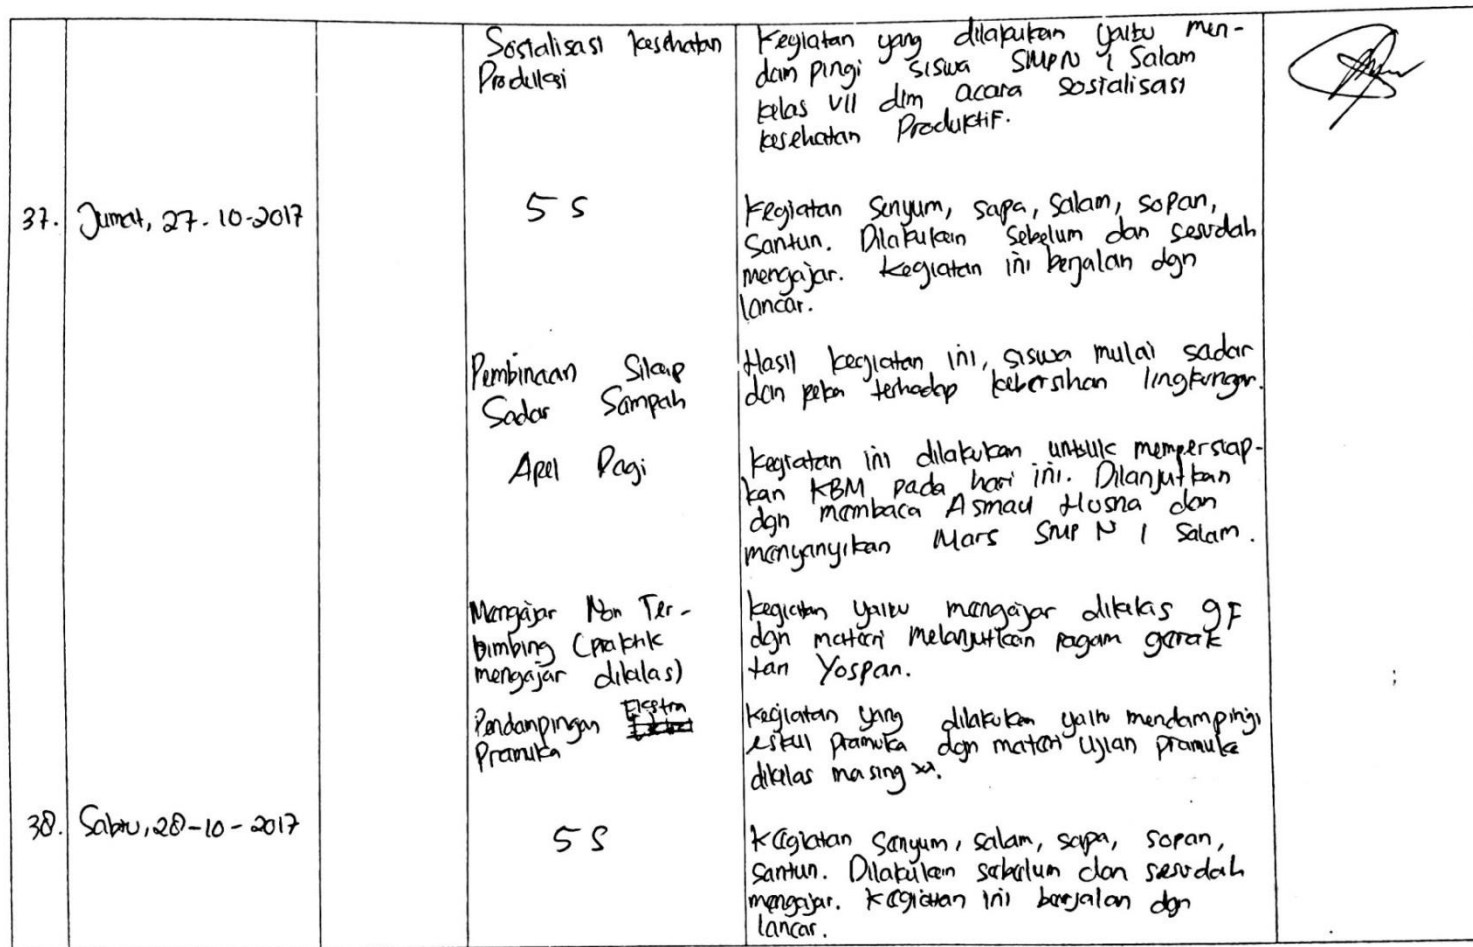 Sosialisasi kesehatan
Produksi
Kegiatan yang dilakukan yaitu men-
dampingi siswa SMPN 1 Salam
kelas VII dlm acara sosialisasi
kesehatan Produktif.
37. Jumat, 27-10-2017
5 S
Kegiatan Senyum, sapa, salam, sopan,
Santun. Dilakukan sebelum dan sesudah
mengajar. Kegiatan ini berjalan dgn
lancar.
Pembinaan Sikap
Sadar Sampah
Hasil kegiatan ini, siswa mulai sadar
dan peka terhadap kebersihan lingkungan.
Apel Pagi
Kegiatan ini dilakukan untuk mempersiap-
kan KBM pada hari ini. Dilanjutkan
dgn membaca Asmaul Husna dan
menyanyikan Mars SMP N 1 Salam.
Mengajar Non Ter-
bimbing (praktik
mengajar dikelas)
kegiatan yaitu mengajar dikelas 9F
dgn materi melanjutkan ragam gerak
tari Yospan.
Pendampingan Ekstra
Pramuka
Kegiatan yang dilakukan yaitu mendampingi
eskul pramuka dgn materi ujian pramuka
dikelas masing xx.
38. Sabtu, 28-10-2017
5 S
Kegiatan Senyum, salam, sapa, sopan,
santun. Dilakukan sebelum dan sesudah
mengajar. Kegiatan ini berjalan dgn
lancar.